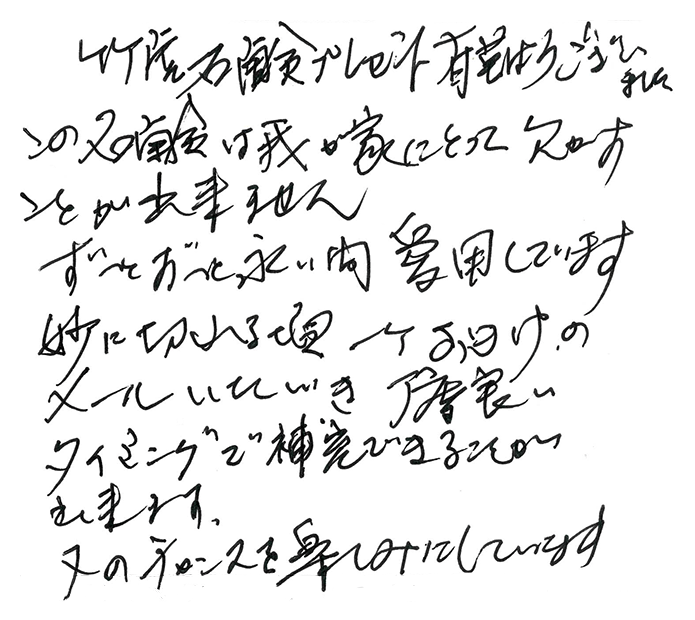 竹炭石鹸プレゼント有難うござい
ました
この石鹸は我が家にとって欠かす
ことが出来ません
ずっとずっと永い間 愛用しています
妙に切れる頃 一ヶおまけ の
メールいただき 良い
タイミングで補充できることが
出来ます。
又のチャンスを楽しみにしています